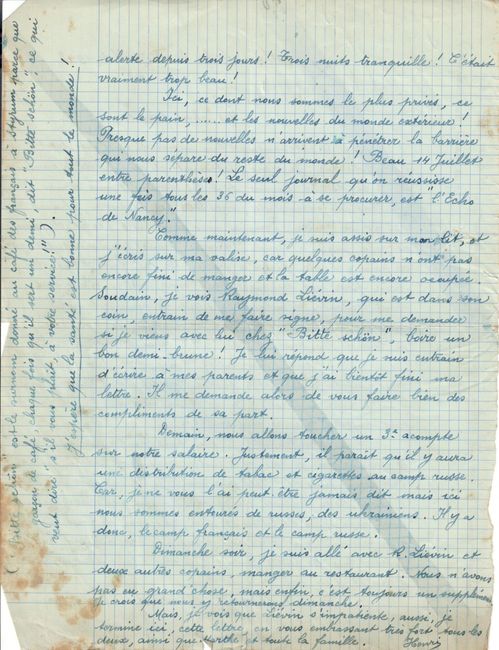 alerte depuis trois jours ! Trois nuits tranquille ! C'était
vraiment trop beau !
Ici, ce dont nous sommes le plus privés, ce
sont le pain, ...... et les nouvelles du monde exterieur !
Presque pas de nouvelles n'arrivent à pénétrer la barrière
qui nous separe du reste du monde ! Beau 14 Juillet
entre parenthèses ! Le seul journal qu'on réussisse
une fois tous les 36 du mois à se procurer, est "l'Echo
de Nancy".
Comme maintenant, je suis assis sur mon lit, et
j'écris sur ma valise, car quelques copains n'ont pas
encore fini de manger et la table est encore occupée.
Soudain, je vois Raymond Liévin, qui est dans son
coin, entrain de me faire signe, pour me demander
si je viens avec lui chez "Bitte schön", boire un
bon demi-brune ! Je lui répond que je suis entrain
d'écrire à mes parents et que j'ai bientôt fini ma
lettre. Il me demande alors de vous faire bien des
compliments de sa part.
Demain, nous allons toucher un 3e acompte
sur notre salaire. Justement, il parait qu'il y aura
une distribution de tabac et cigarettes au camp russe.
Car, je ne vous l'ai peut être jamais dit mais ici
nous sommes entourés de russes, des ukrainiens. Il y a
donc, le camp français et le camp russe.
Dimanche soir, je suis allé avec R. Liévin et
deux autres copains, manger au restaurant. Nous n'avons
pas eu grand chose, mais enfin, c'est toujours un supplément
Je crois que nous y retournerons dimanche.
Mais, je vois que Liévin s'impatiente, aussi, je
termine ici, cette lettre, en vous embrassant très fort tous les
deux, ainsi que Marthe, et toute la famille. Henri
("Bitte schön" est le surnom donné au café des français à Styrum parce que
le garçon de café, chaque fois qu'il sert un demi, dit "Bitte schön", ce qui
veut dire "s'il vous plaît, à votre service !").
J'espère que la santé est bonne pour tout le monde !